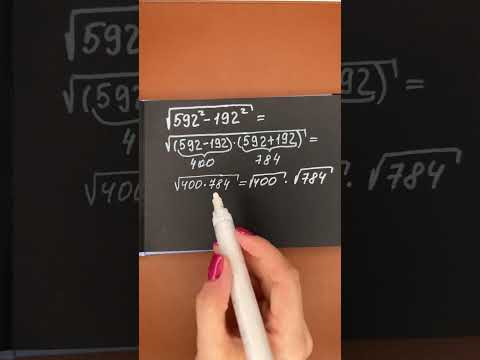 √592² - 192² =
√(592 - 192) · (592 + 192) =
400 784
√400 · 784 = √400 · √784